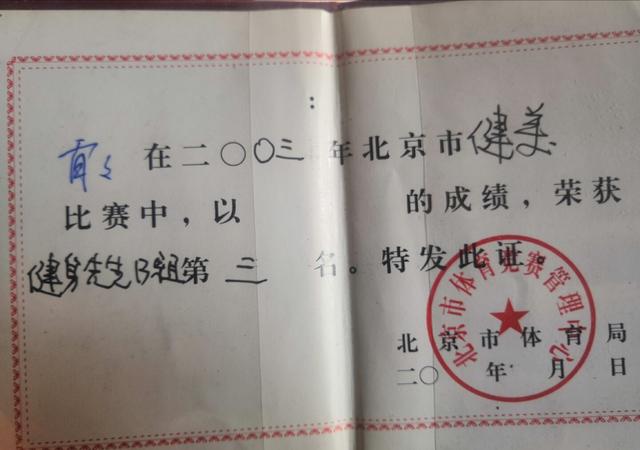 :
在二〇〇三年北京市健美
比赛中，以 的成绩，荣获
健身先生B组第三名。特发此证。
北京市体育局
二〇 年 月 日
北京市体育竞赛管理中心